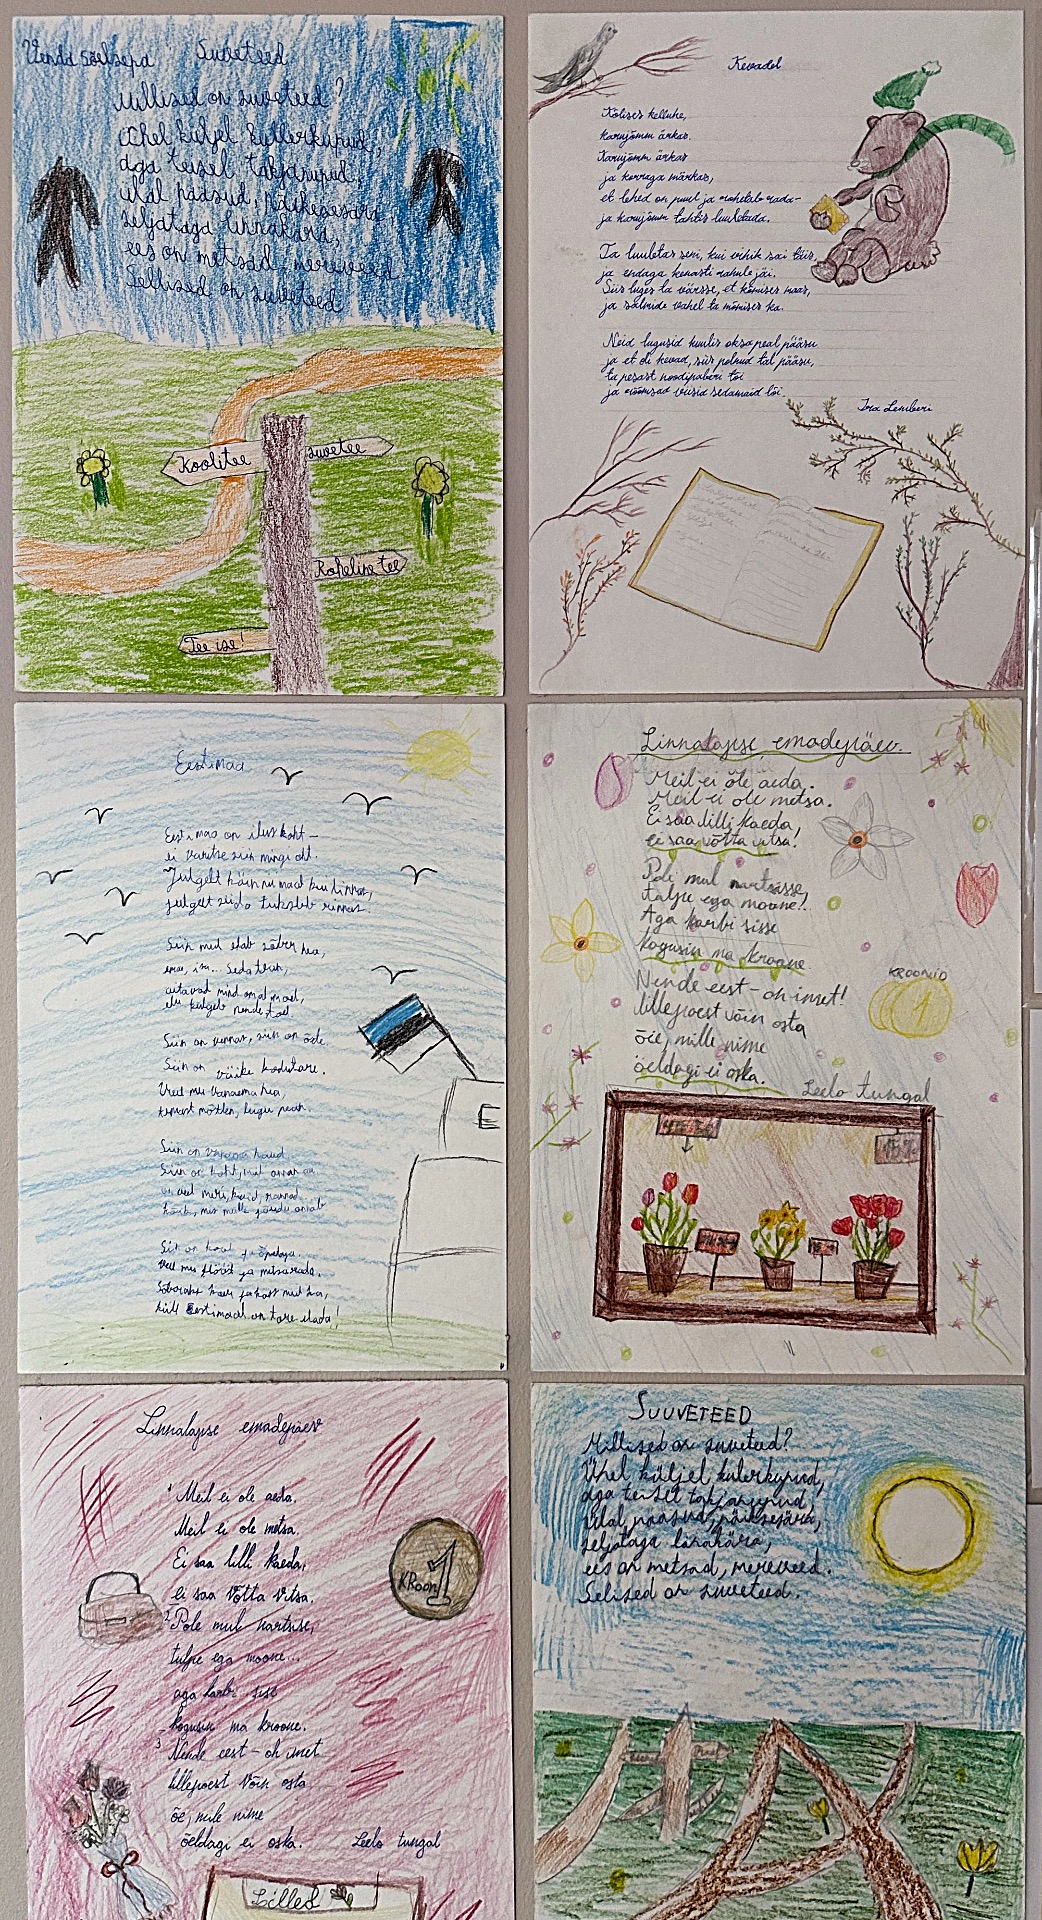 Suveteed
Millised on suveteed?
Ühel küljel kullerkupud,
aga teisel takjanupud,
ülal pääsud, päikesesära,
seljataga linnakära,
ees on metsad, mereveed.
Sellised on suveteed
Koolitee
Suvetee
Roheline tee
Tee ise!
Kevadel
Kõlises kelluke,
karujõmm ärkas.
Karujõmm ärkas
ja korraga märkas,
et lehed on puul ja rohetab rada-
ja karujõmm tahtis luuletada.
Ta luuletas seni, kui vihik sai täis,
ja endaga kenasti rahule jäi.
Siis luges ta värsse, et kõmises maas,
ja salmide vahel ta mõmises ka.
Neid lugusid kuulis oksa peal pääsu
ja et oli kevad, siis polnud tal pääsu,
ta pesast noodipaberi tõi
ja rõõmsad viisid sedamaid lõi.
Ira Lember
Eestimaa
Eestimaa on ilus koht-
ei varitse siin mingi oht.
Julgelt käin nii maal kui linnas,
julgelt süda tuksleb rinnas.
Siin mul elab sõber hea,
ema, isa... Seda tean,
aitavad mind omal moel,
elu kulgeb nende toel.
Siin on vennas, siin on õde
Siin on väike kodutare.
Veel mu vanaema hea,
Siin on vanaisa haud.
Siin on koht, mis
on veel meri, kaid, rannad
Siin on kool ja õpetaja
veel mu
küll Eestimaal on tore elada!
E
Linnalapse emadepäev.
Meil ei õle aeda.
Meil ei ole metsa.
Ei saa lilli kaeda,
ei saa võtta vitsa.
Pole mul nartsisse,
tulpe ega moone!..
Aga karbi sisse
kogusin ma kroone.
Nende eest - oh imet!
lillepoest võin osta
õie, mille nime
öeldagi ei oska.
Leelo tungal
KROONID
1
Linnalapse emadepäev
1 Meil ei ole aeda.
Meil ei ole metsa.
Ei saa lilli kaeda,
ei saa võtta vitsa.
2 Pole mul nartsise,
tulpe ega moone...
aga karbi sise
kogusin ma kroone.
3 Nende eest - oh imet
lillepoest võin osta
õe, mile nime
öeldagi ei oska.
Leelo tungal
KRoon 1
Lilled
SUUVETEED
Millised on suveteed?
Ühel küljel kulerkupud,
aga teisel takjanupud,
ülal pääsud, päiksesära,
seljataga linakära,
ees on metsad, mereveed.
Selised on suveteed.